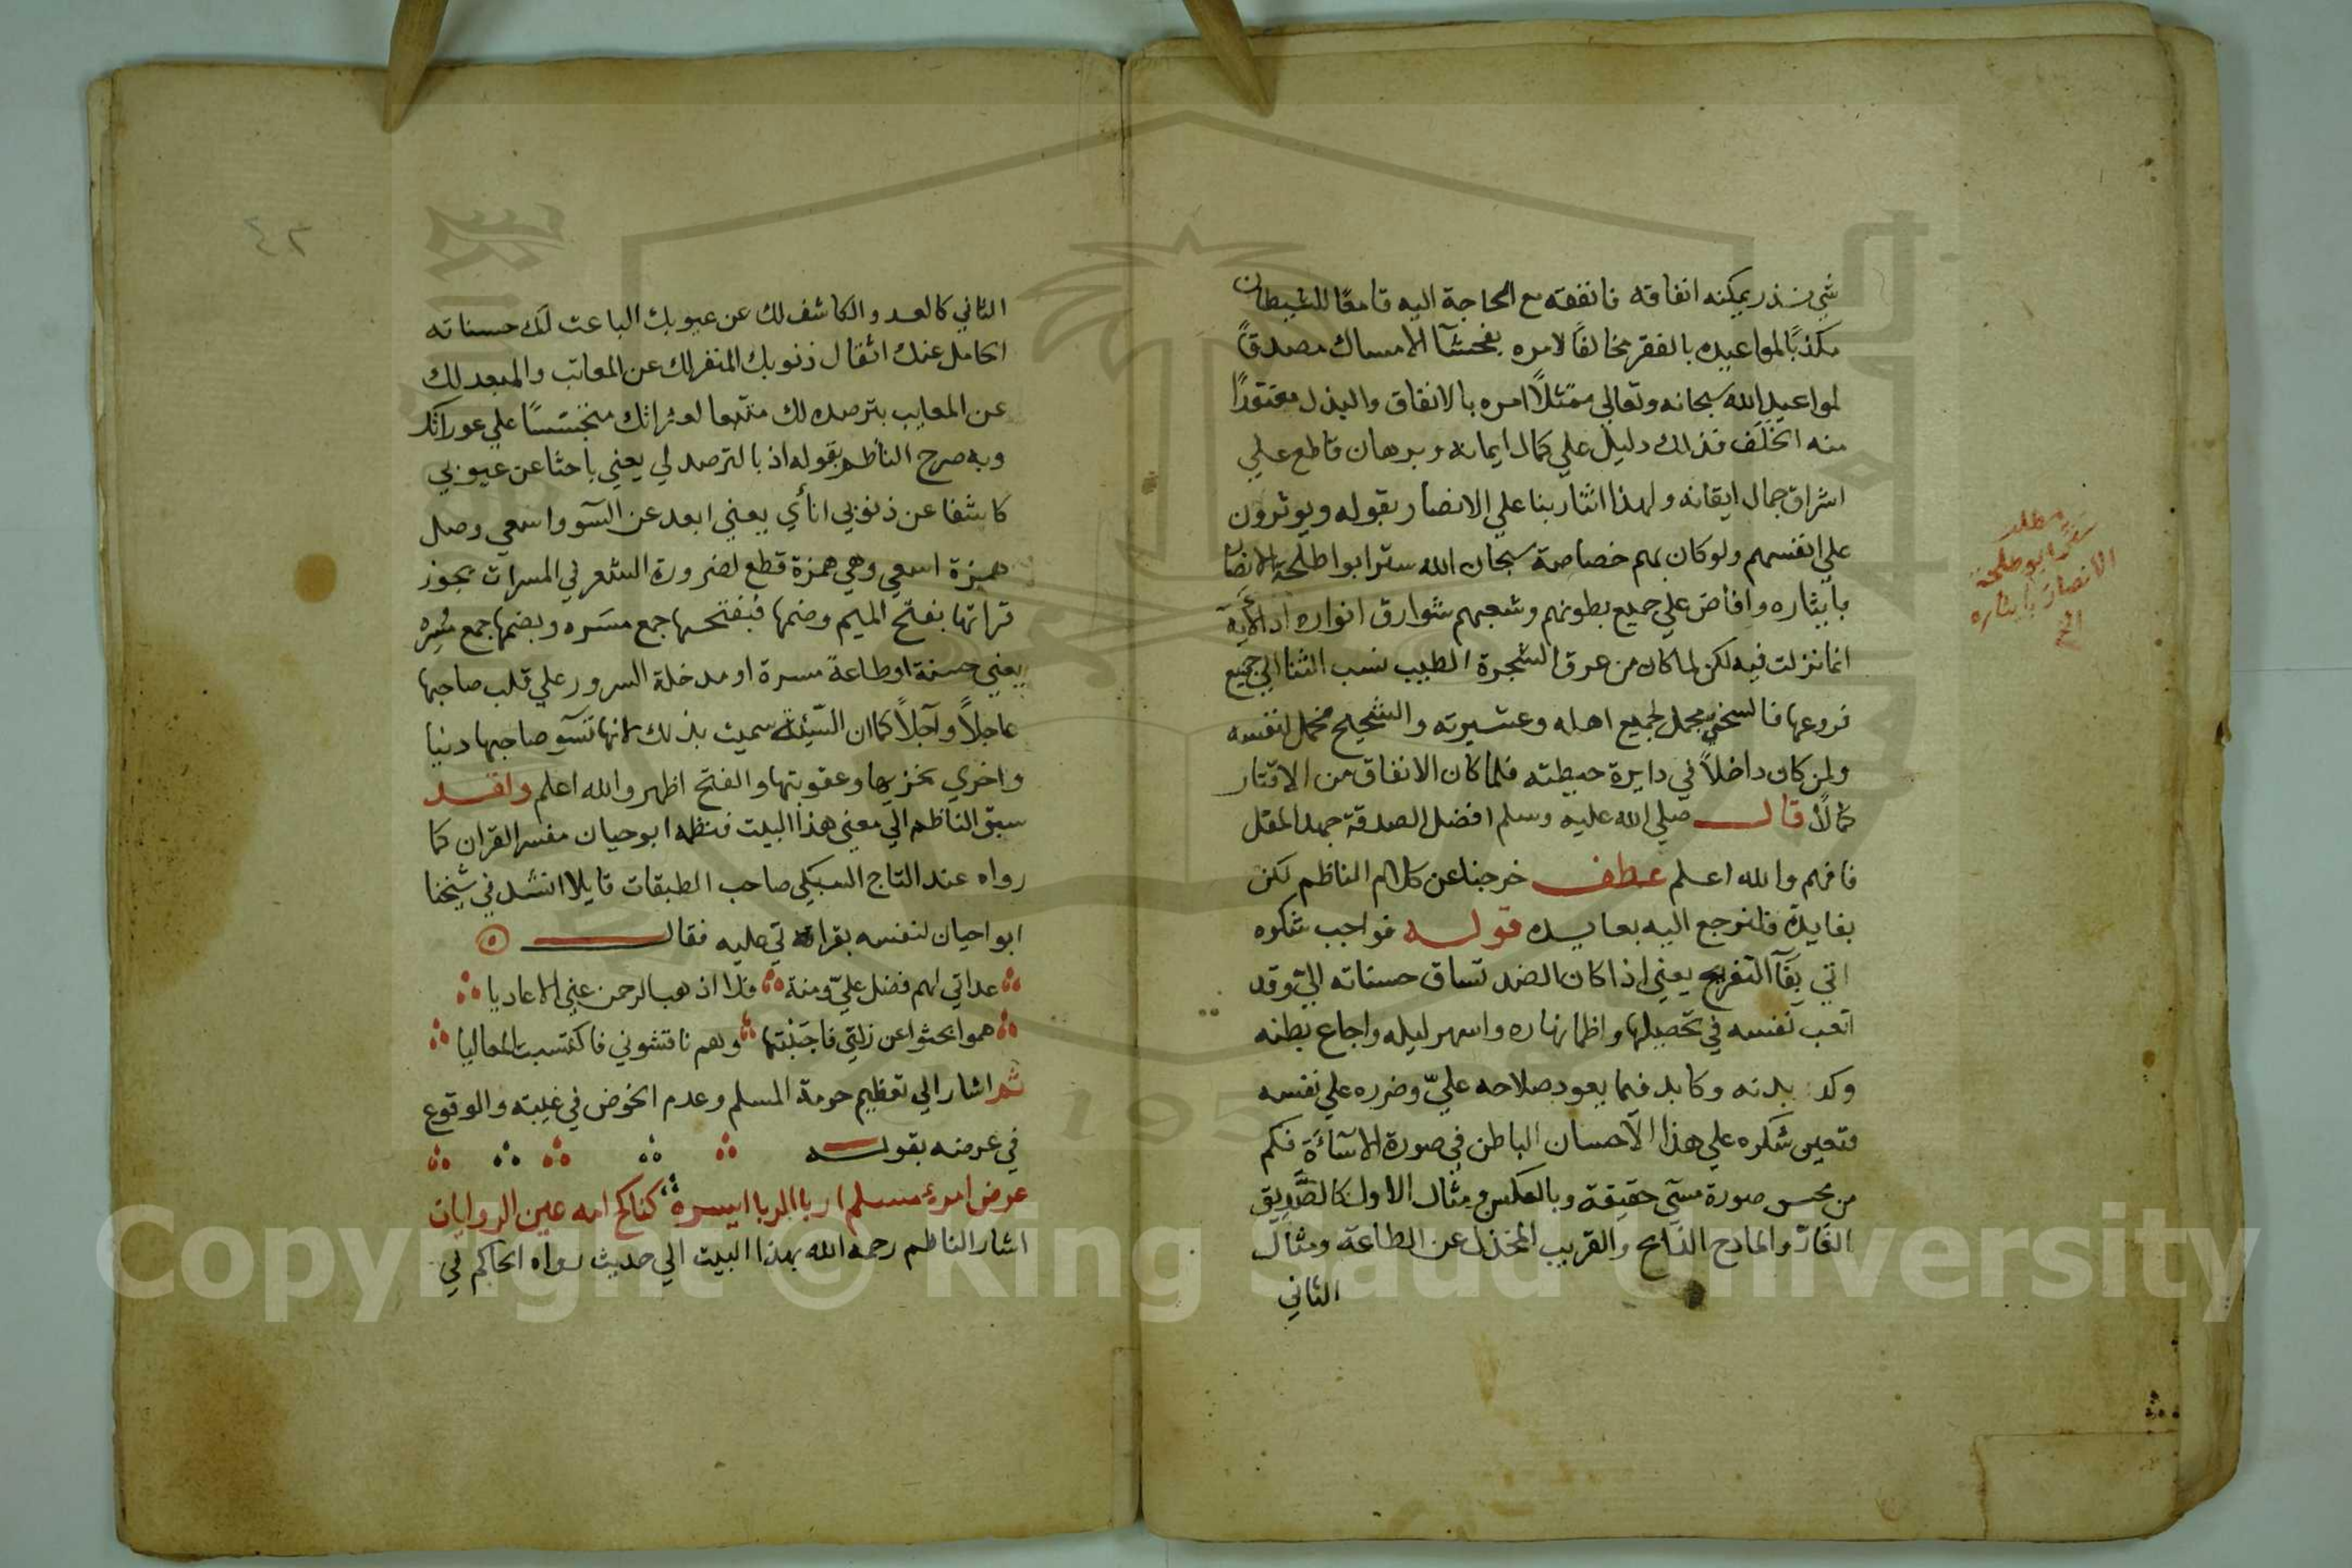 شي نذر يمكنه انفاقه فانفقه مع الحاجة اليه قامعًا للشيطان
مكذبًا لمواعيده بالفقر مخالفًا لامره بفحشآ الامساك مصدقًا
لمواعيد الله سبحانه وتعالي ممتثلًا امره بالانفاق والبذل
منه الخَلَف فذلك دليل علي كمال ايمانه وبرهان قاطع علي
اشراق جمال ايقانه ولهذا اثنا ربنا علي الانصار بقوله ويوثرون
علي انفسهم ولو كان بهم خصاصة سبحان الله ستر ابو اطلحة الانصار
بايثاره وافاض علي جميع بطونهم وشعبهم شوارق انواره اذ الآية
انما نزلت فيه لكن لما كان من عرق الشجرة الطيب نسب الثنا الي جميع
فروعها فالسخي مجمل لجميع اهله وعشيرته والشحيح مخمل لنفسه
ولمن كان داخلاً في دايرة حيطته فلما كان الانفاق من الاقتار
كمالًا قال صلي الله عليه وسلم افضل الصدقة جهد المقل
فافهم والله اعلم عطف خرجنا عن كلام الناظم لكن
بفايدة فلنرجع اليه بعايده قوله فواجب شكره
اتي بَفآ التفريح يعني اذا كان الضد تساق حسناته اليّ وقد
اتعب نفسه في تحصيلها واظما نهاره واسهر ليله واجاع بطنه
وكد بدنه وكابد فيما يعود صلاحه عليّ وضرره علي نفسه
فتعين شكره علي هذا الاحسان الباطن في صورة الاسآءَة فكم
من محسن صورة مسئ حقيقة وبالعكس ومثال الاول كالصديق
الغَارّ والمادح الذابح والقريب المخذل عن الطاعة ومثال
الثاني
مطلب
ستر ابو طلحة
الانصار بايثاره
الخ
٤٢
الثاني كالعدو الكاشف لك عن عيوبك الباعث لك حسناته
الحامل عنك اثقال ذنوبك المنفر لك عن المعاتب والمبعد لك
عن المعايب بترصده لك متتبعا لعثراتك متجسسًا علي عوراتك
وبه صرح الناظم بقوله اذ بالترصد لي يعني باحثا عن عيوبي
كاشفا عن ذنوبي انأي يعني ابعد عن السوو اسعي وصل
همزة اسعي وهي همزة قطع لضرورة الشعر في المسرات يجوز
قراتها بفتح الميم وضمها فبفتحها جمع مسَره وبضمها جمع مُسِره
يعني حسنة او طاعة مسرة او مدخلة السرور علي قلب صاحبها
عاجلاً وآجلاً كما ان السّيئة سميت بذلك لانها تسوء صاحبها دنيا
واخري بخزيها وعقوبتها والفتح اظهر والله اعلم ولقد
سبق الناظم الي معني هذا البيت فنظمه ابو حيان مفسر القران كما
رواه عنه التاج السبكي صاحب الطبقات قايلا انشدني شيخنا
ابو احيان لنفسه بقراتي عليه فقال
عداتي لهم فضل عليّ ومنة فلا اذهب الرحمن عني الاعاديا
هموا بحثوا عن زلتي فاجتنبتها وهم نافشوني فاكتسبت المعاليا
ثم اشار الي تعظيم حرمة المسلم وعدم الخوض في غيبته والوقوع
في عرضه بقوله
عرض امرئ مسلم اربا الربا ايسره كناكح امه عين الروايات
اشار الناظم رحمه الله بهذا البيت الي حديث رواه الحاكم في
Copyright © King Saud University